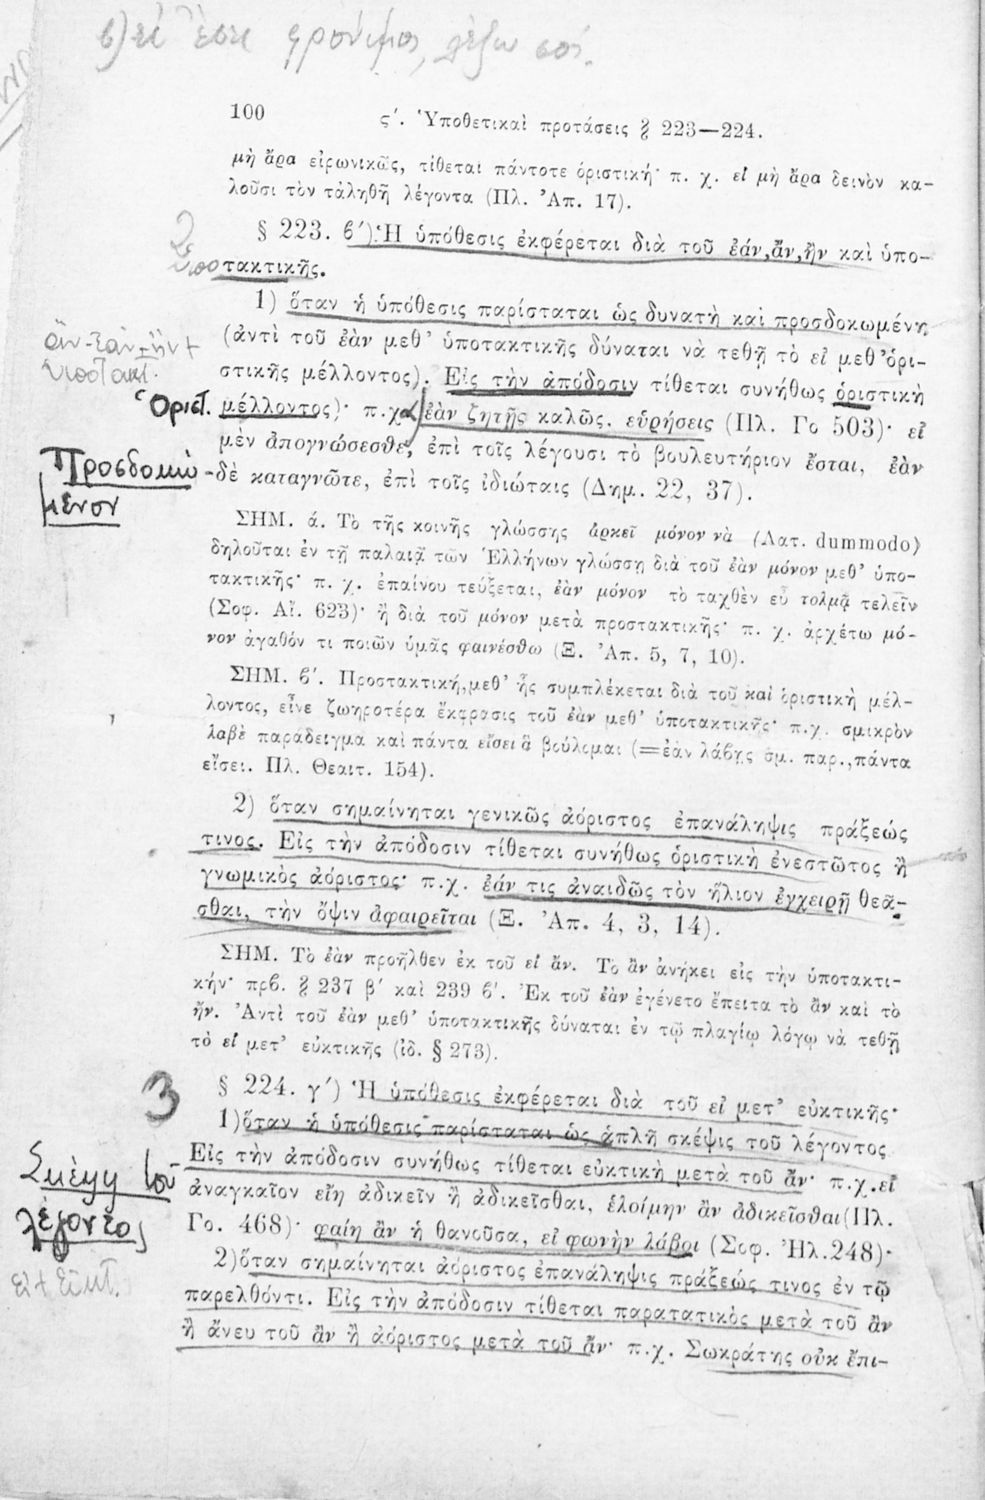 εἰ ἔστι φρόνιμος, λέξω σοί.
100 ϛ΄. Ὑποθετικαὶ προτάσεις § 223—224.
μὴ ἄρα εἰρωνικῶς, τίθεται πάντοτε ὁριστική· π. χ. εἰ μὴ ἄρα δεινὸν κα-
λοῦσι τὸν τἀληθῆ λέγοντα (Πλ. Ἀπ. 17).
2
§ 223. β΄) Ἡ ὑπόθεσις ἐκφέρεται διὰ τοῦ ἐάν, ἄν, ἢν καὶ ὑπο-
τακτικῆς.
1) ὅταν ἡ ὑπόθεσις παρίσταται ὡς δυνατὴ καὶ προσδοκωμένη
(ἀντὶ τοῦ ἐὰν μεθ' ὑποτακτικῆς δύναται νὰ τεθῇ τὸ εἰ μεθ' ὁρι-
ἂν-ἐὰν-ἢν +
ὑποτακτ.
στικῆς μέλλοντος). Εἰς τὴν ἀπόδοσιν τίθεται συνήθως ὁριστικὴ
Ὁριστ.
μέλλοντος)· π.χ. ἐὰν ζητῇς καλῶς, εὑρήσεις (Πλ. Γο 503)· εἰ
μὲν ἀπογνώσεσθε, ἐπὶ τοῖς λέγουσι τὸ βουλευτήριον ἔσται, ἐὰν
Προσδοκώ-
μενον
δὲ καταγνῶτε, ἐπὶ τοῖς ἰδιώταις (Δημ. 22, 37).
ΣΗΜ. ά. Τὸ τῆς κοινῆς γλώσσης ἀρκεῖ μόνον νὰ (Λατ. dummodo)
δηλοῦται ἐν τῇ παλαιᾷ τῶν Ἑλλήνων γλώσσῃ διὰ τοῦ ἐὰν μόνον μεθ' ὑπο-
τακτικῆς· π. χ. ἐπαίνου τεύξεται, ἐὰν μόνον τὸ ταχθὲν εὖ τολμᾷ τελεῖν
(Σοφ. Αἴ. 623)· ἢ διὰ τοῦ μόνον μετὰ προστακτικῆς· π. χ. ἀρχέτω μό-
νον ἀγαθόν τι ποιῶν ὑμᾶς φαινέσθω (Ξ. Ἀπ. 5, 7, 10).
ΣΗΜ. β΄. Προστακτική, μεθ' ἧς συμπλέκεται διὰ τοῦ καὶ ὁριστικὴ μέλ-
λοντος, εἶνε ζωηροτέρα ἔκφρασις τοῦ ἐὰν μεθ' ὑποτακτικῆς· π.χ. σμικρὸν
λαβὲ παράδειγμα καὶ πάντα εἴσει ἃ βούλομαι (=ἐὰν λάβῃς σμ. παρ., πάντα
εἴσει. Πλ. Θεαιτ. 154).
2) ὅταν σημαίνηται γενικῶς ἀόριστος ἐπανάληψις πράξεώς
τινος. Εἰς τὴν ἀπόδοσιν τίθεται συνήθως ὁριστικὴ ἐνεστῶτος ἢ
γνωμικὸς ἀόριστος· π.χ. ἐάν τις ἀναιδῶς τὸν ἥλιον ἐγχειρῇ θεᾶ-
σθαι, τὴν ὄψιν ἀφαιρεῖται (Ξ. Ἀπ. 4, 3, 14).
ΣΗΜ. Τὸ ἐὰν προῆλθεν ἐκ τοῦ εἰ ἄν. Τὸ ἂν ἀνήκει εἰς τὴν ὑποτακτι-
κήν· πρβ. § 237 β΄ καὶ 239 β΄. Ἐκ τοῦ ἐὰν ἐγένετο ἔπειτα τὸ ἂν καὶ τὸ
ἤν. Ἀντὶ τοῦ ἐὰν μεθ' ὑποτακτικῆς δύναται ἐν τῷ πλαγίῳ λόγῳ νὰ τεθῇ
τὸ εἰ μετ' εὐκτικῆς (ἰδ. § 273).
3
§ 224. γ΄) Ἡ ὑπόθεσις ἐκφέρεται διὰ τοῦ εἰ μετ' εὐκτικῆς·
1) ὅταν ἡ ὑπόθεσις παρίσταται ὡς ἁπλῆ σκέψις τοῦ λέγοντος.
Εἰς τὴν ἀπόδοσιν συνήθως τίθεται εὐκτικὴ μετὰ τοῦ ἄν· π.χ. εἰ
Σκέψη τοῦ
λέγοντος
ἀναγκαῖον εἴη ἀδικεῖν ἢ ἀδικεῖσθαι, ἑλοίμην ἂν ἀδικεῖσθαι (Πλ.
Γο. 468)· φαίη ἂν ἡ θανοῦσα, εἰ φωνὴν λάβοι (Σοφ. Ἠλ. 248)·
εἰ + εὐκτ.
2) ὅταν σημαίνηται ἀόριστος ἐπανάληψις πράξεώς τινος ἐν τῷ
παρελθόντι. Εἰς τὴν ἀπόδοσιν τίθεται παρατατικὸς μετὰ τοῦ ἂν
ἢ ἄνευ τοῦ ἂν ἢ ἀόριστος μετὰ τοῦ ἄν· π.χ. Σωκράτης οὐκ ἔπι-